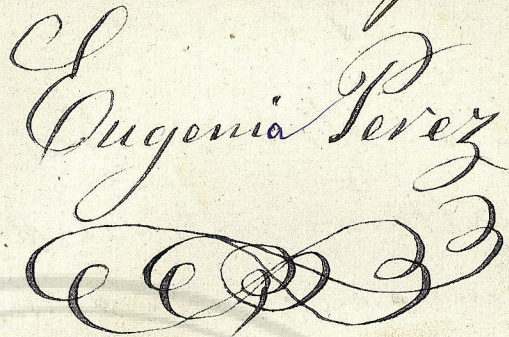 Eugenia Perez